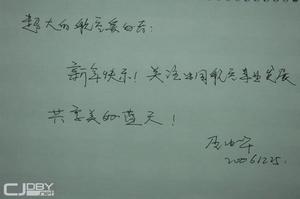 超大的航空爱好者:
新年快乐!关注中国航空事业发展
共享美的蓝天!
20061225.
CJDBY.net